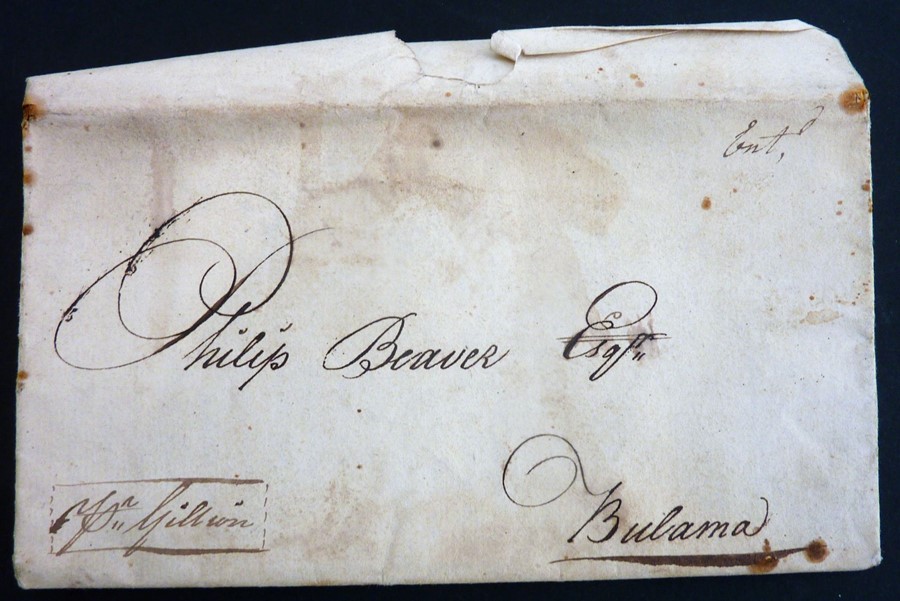 Ent,d
Philip Beaver Esqr
Bulama
Pr